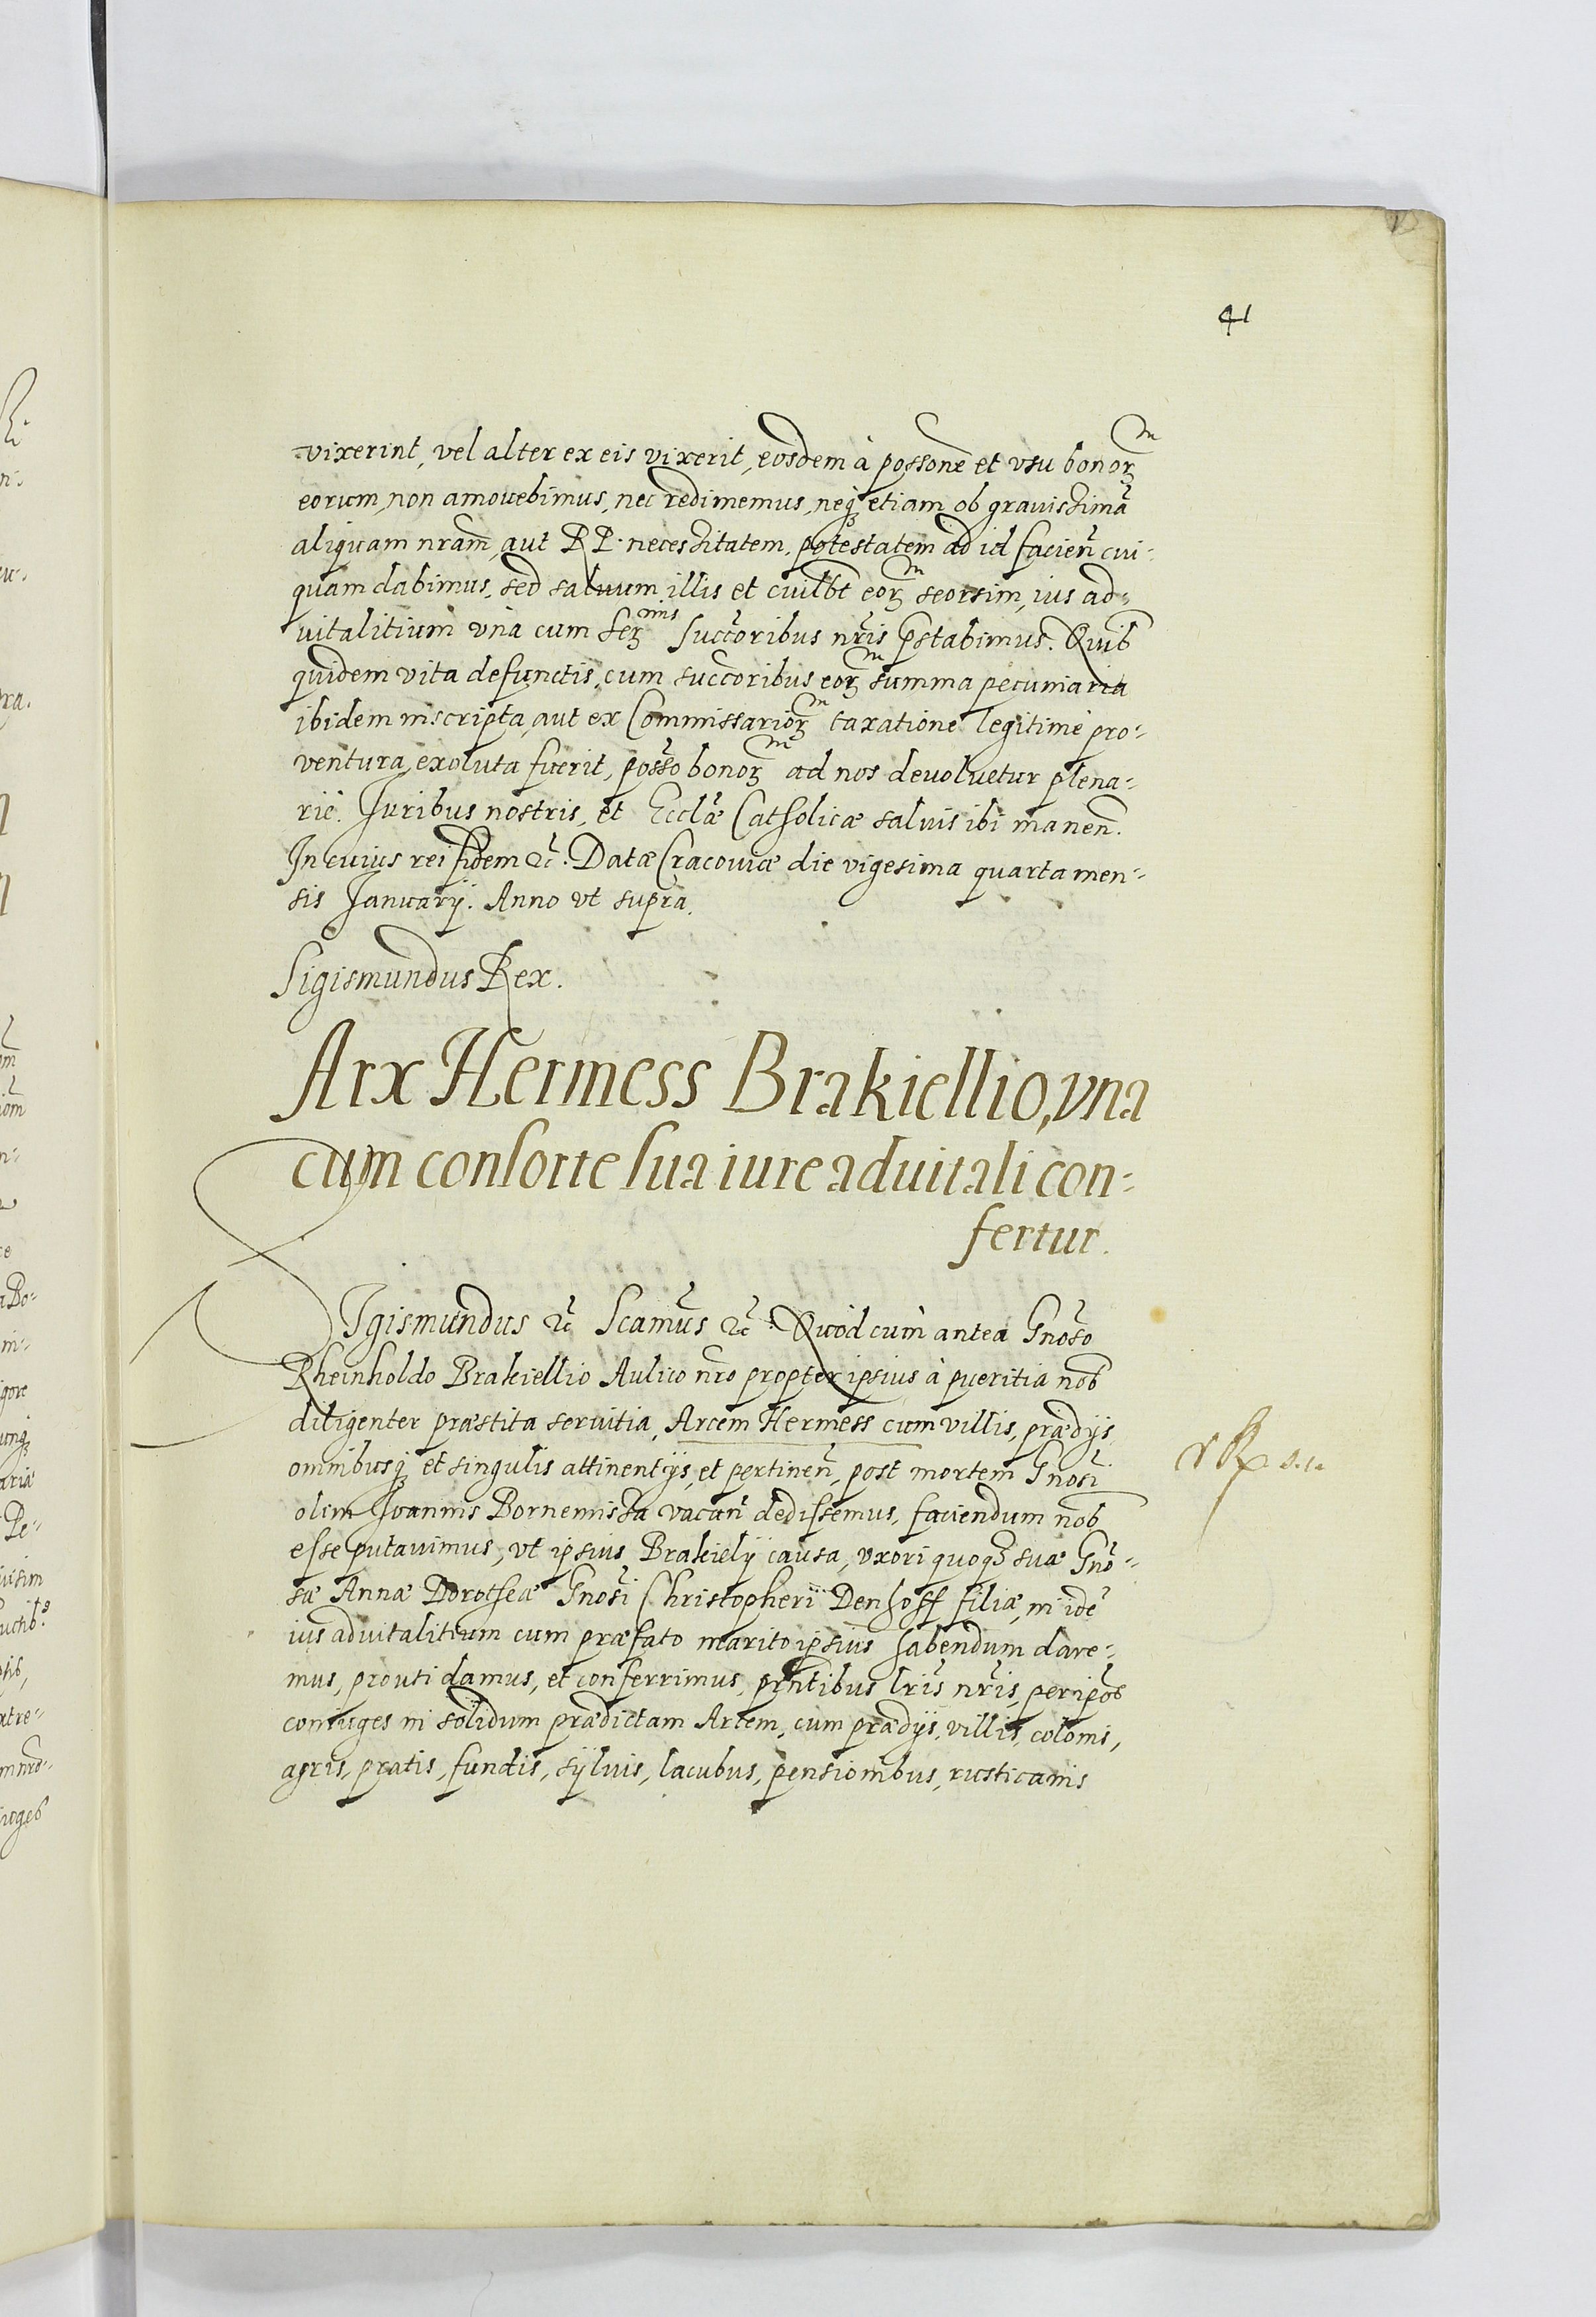 41
vixerint, vel alter ex eis vixerit, eosdem à possone et vsu bonorꝫ m
eorum, non amouebimus, nec redimemus, neqꝫ etiam ob grauissimã
aliquam nram, aut RP. necessitatem, potestatem ad id facien cui-
quam dabimus, sed saluum illis et cuilbt eorꝫ m seorsim, ius ad-
uitalitium vnà cum Serꝫ mis succoribus nris p̃stabimus. Quib
quidem vita defunctis, cum succoribus eorꝫ m summa pecuniaria
ibidem inscripta, aut ex Commissariorꝫ m taxatione legitimè pro-
ventura, exoluta fuerit, posso bonorꝫ m ad nos deuoluetur plena-
riè. Juribus nostris, et Ecclæ Catholicæ saluis ibi manen.
In cuius rei fidem &c. Datæ Cracouiæ die vigesima quarta men-
sis Januarij. Anno vt supra.
Sigismundus Rex.
Arx Hermess Brakiellio, vna
cum consorte sua iure aduitali con-
fertur.
SIgismundus &c Scamus &c. Quòd cum antea Gnoso
Rheinholdo Brakiellio Aulico nro propter ipsius à pueritia nob
diligenter præstita seruitia, Arcem Hermess cum villis, prædijs
omnibusqꝫ et singulis attinentijs, et pertinen, post mortem Gnosi
olim Joannis Bornemissa vacan dedissemus, faciendum nob
esse putauimus, vt ipsius Brakielij causa, vxori quoqꝫ suæ Gno-
sæ Annæ Dorotheæ Gnosi Christopheri Denhoff filiæ, in idẽ
ius aduitalitium cum præfato marito ipsius habendum dare-
mus, prouti damus, et conferrimus, prntibus lris nris, per ipos
coniuges in solidum prædictam Arcem, cum prædijs, villis, colonis,
agris, pratis, fundis, syluis, lacubus, pensionibus, rusticanis